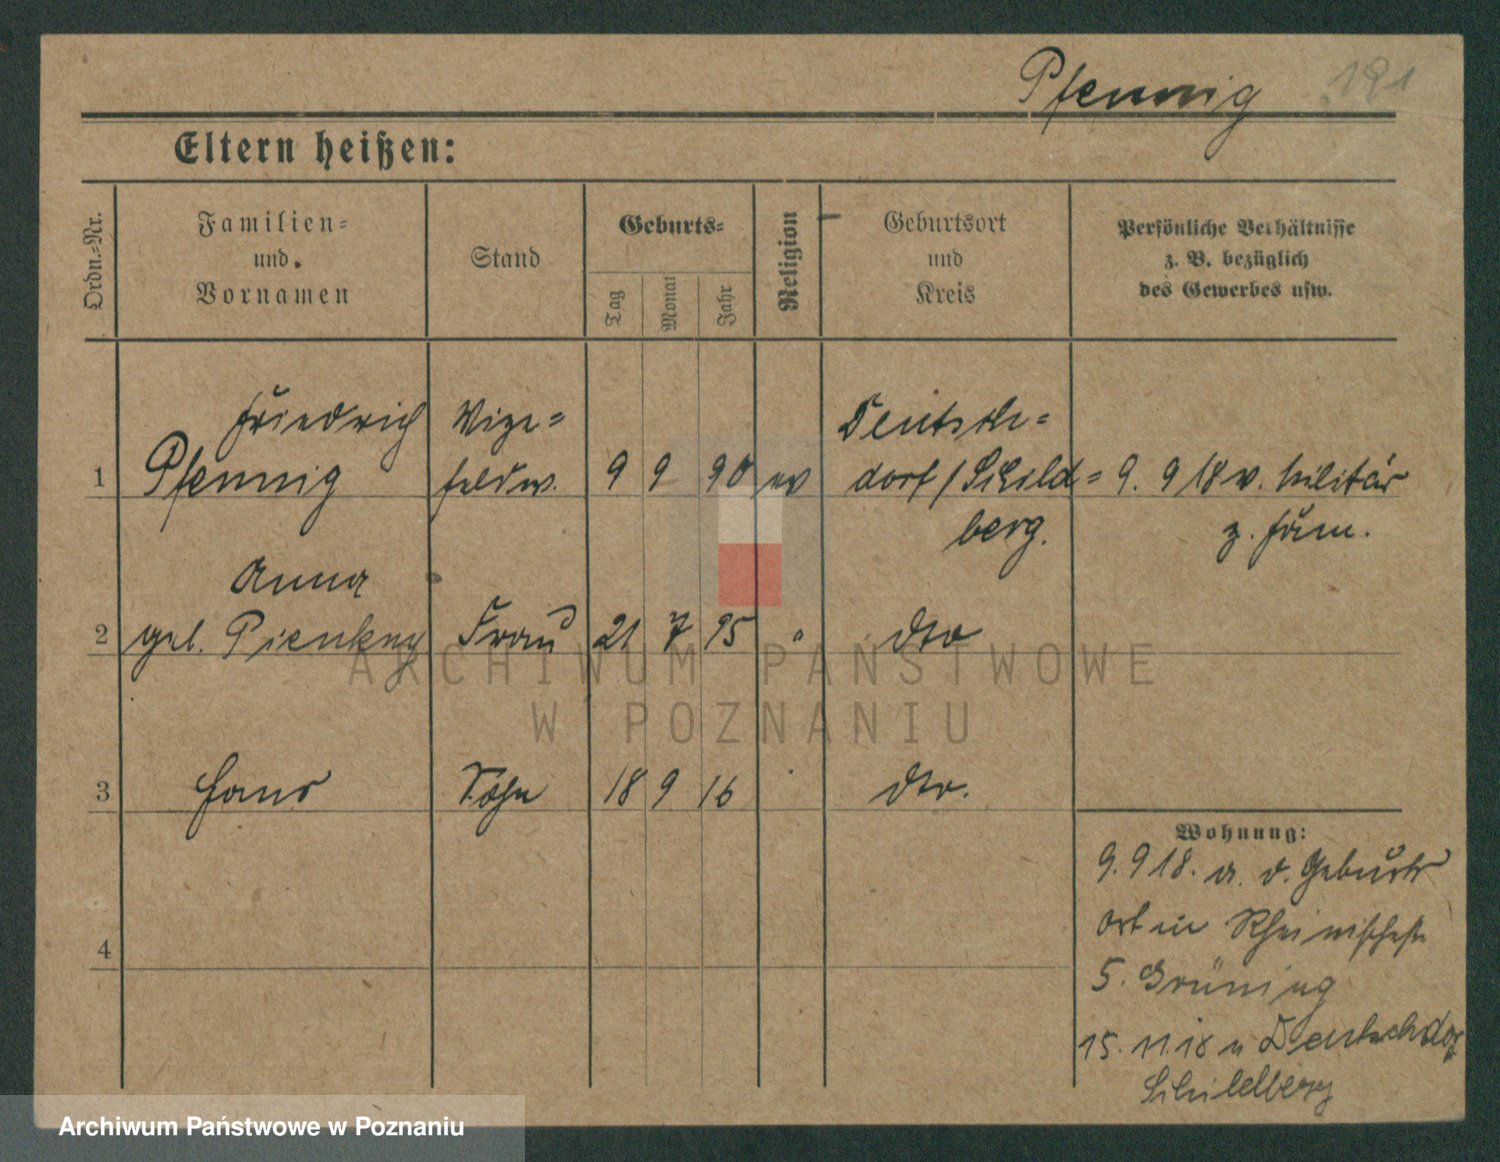 Pfennig 121
Eltern heißen:
Ordn.-Nr.
Familien-
und
Vornamen
Stand
Geburts-
Tag
Monat
Jahr
Religion
Geburtsort
und
Kreis
Persönliche Verhältnisse
z. B. bezüglich
des Gewerbes usw.
Friedrich Vize- Deutsch-
1 Pfennig feldw. 9 9 90 ev dorf/Schild- 9. 9 18 v. Militär
berg. z. Fam.
Anna
2 geb. Pienkny Frau 21 7 95 " dto
3 Hans Sohn 18 9 16 dto.
Wohnung:
9. 9 18. a. d. Geburts
ort in
4
5. Grüning
15. 11. 18 n Deutschdorf
Schildberg
ARCHIWUM PAŃSTWOWE
W POZNANIU
Archiwum Państwowe w Poznaniu